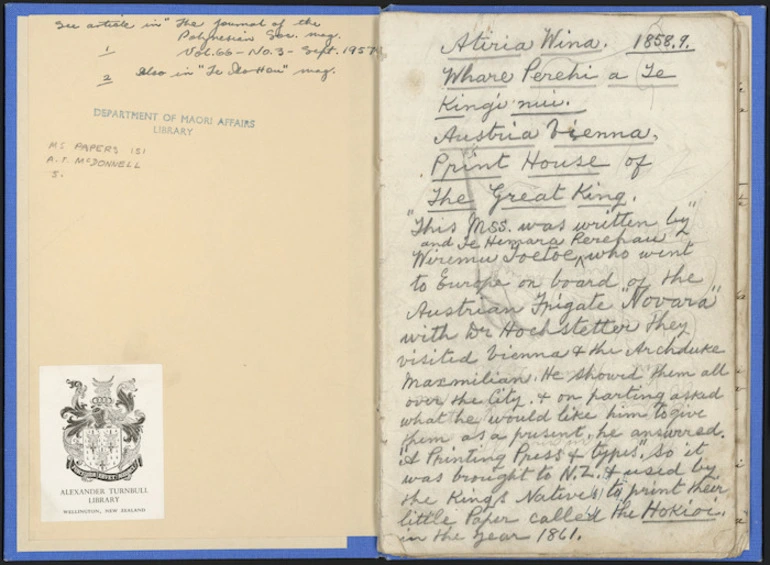 See article in "The Journal of the
Polynesian Soc. mag.
1 Vol. 66 - No. 3 - Sept. 1957
2 Also in "Te Ao Hou" mag.
DEPARTMENT OF MAORI AFFAIRS
LIBRARY
MS PAPERS 151
A.F. McDONNELL
5.
ALEXANDER TURNBULL
LIBRARY
WELLINGTON, NEW ZEALAND
Atiria Wina. 1858.9.
Whare Perehi a Te
Kingi nui.
Austria Vienna,
Print House of
The Great King.
"This Mss. was written by"
and Te Hemara Rerehau
Wiremu Toetoe, who went
to Europe on board of the
Austrian Frigate "Novara"
with Dr Hochstetter They
visited Vienna & the Archduke
Maxmilian. He showed them all
over the City, & on parting asked
what he would like him to give
them as a present, he answered.
"A Printing Press & types". So it
was brought to N.Z. & used by
the Kings Natives to print their
little Paper called the Hokioi.
in the year 1861.